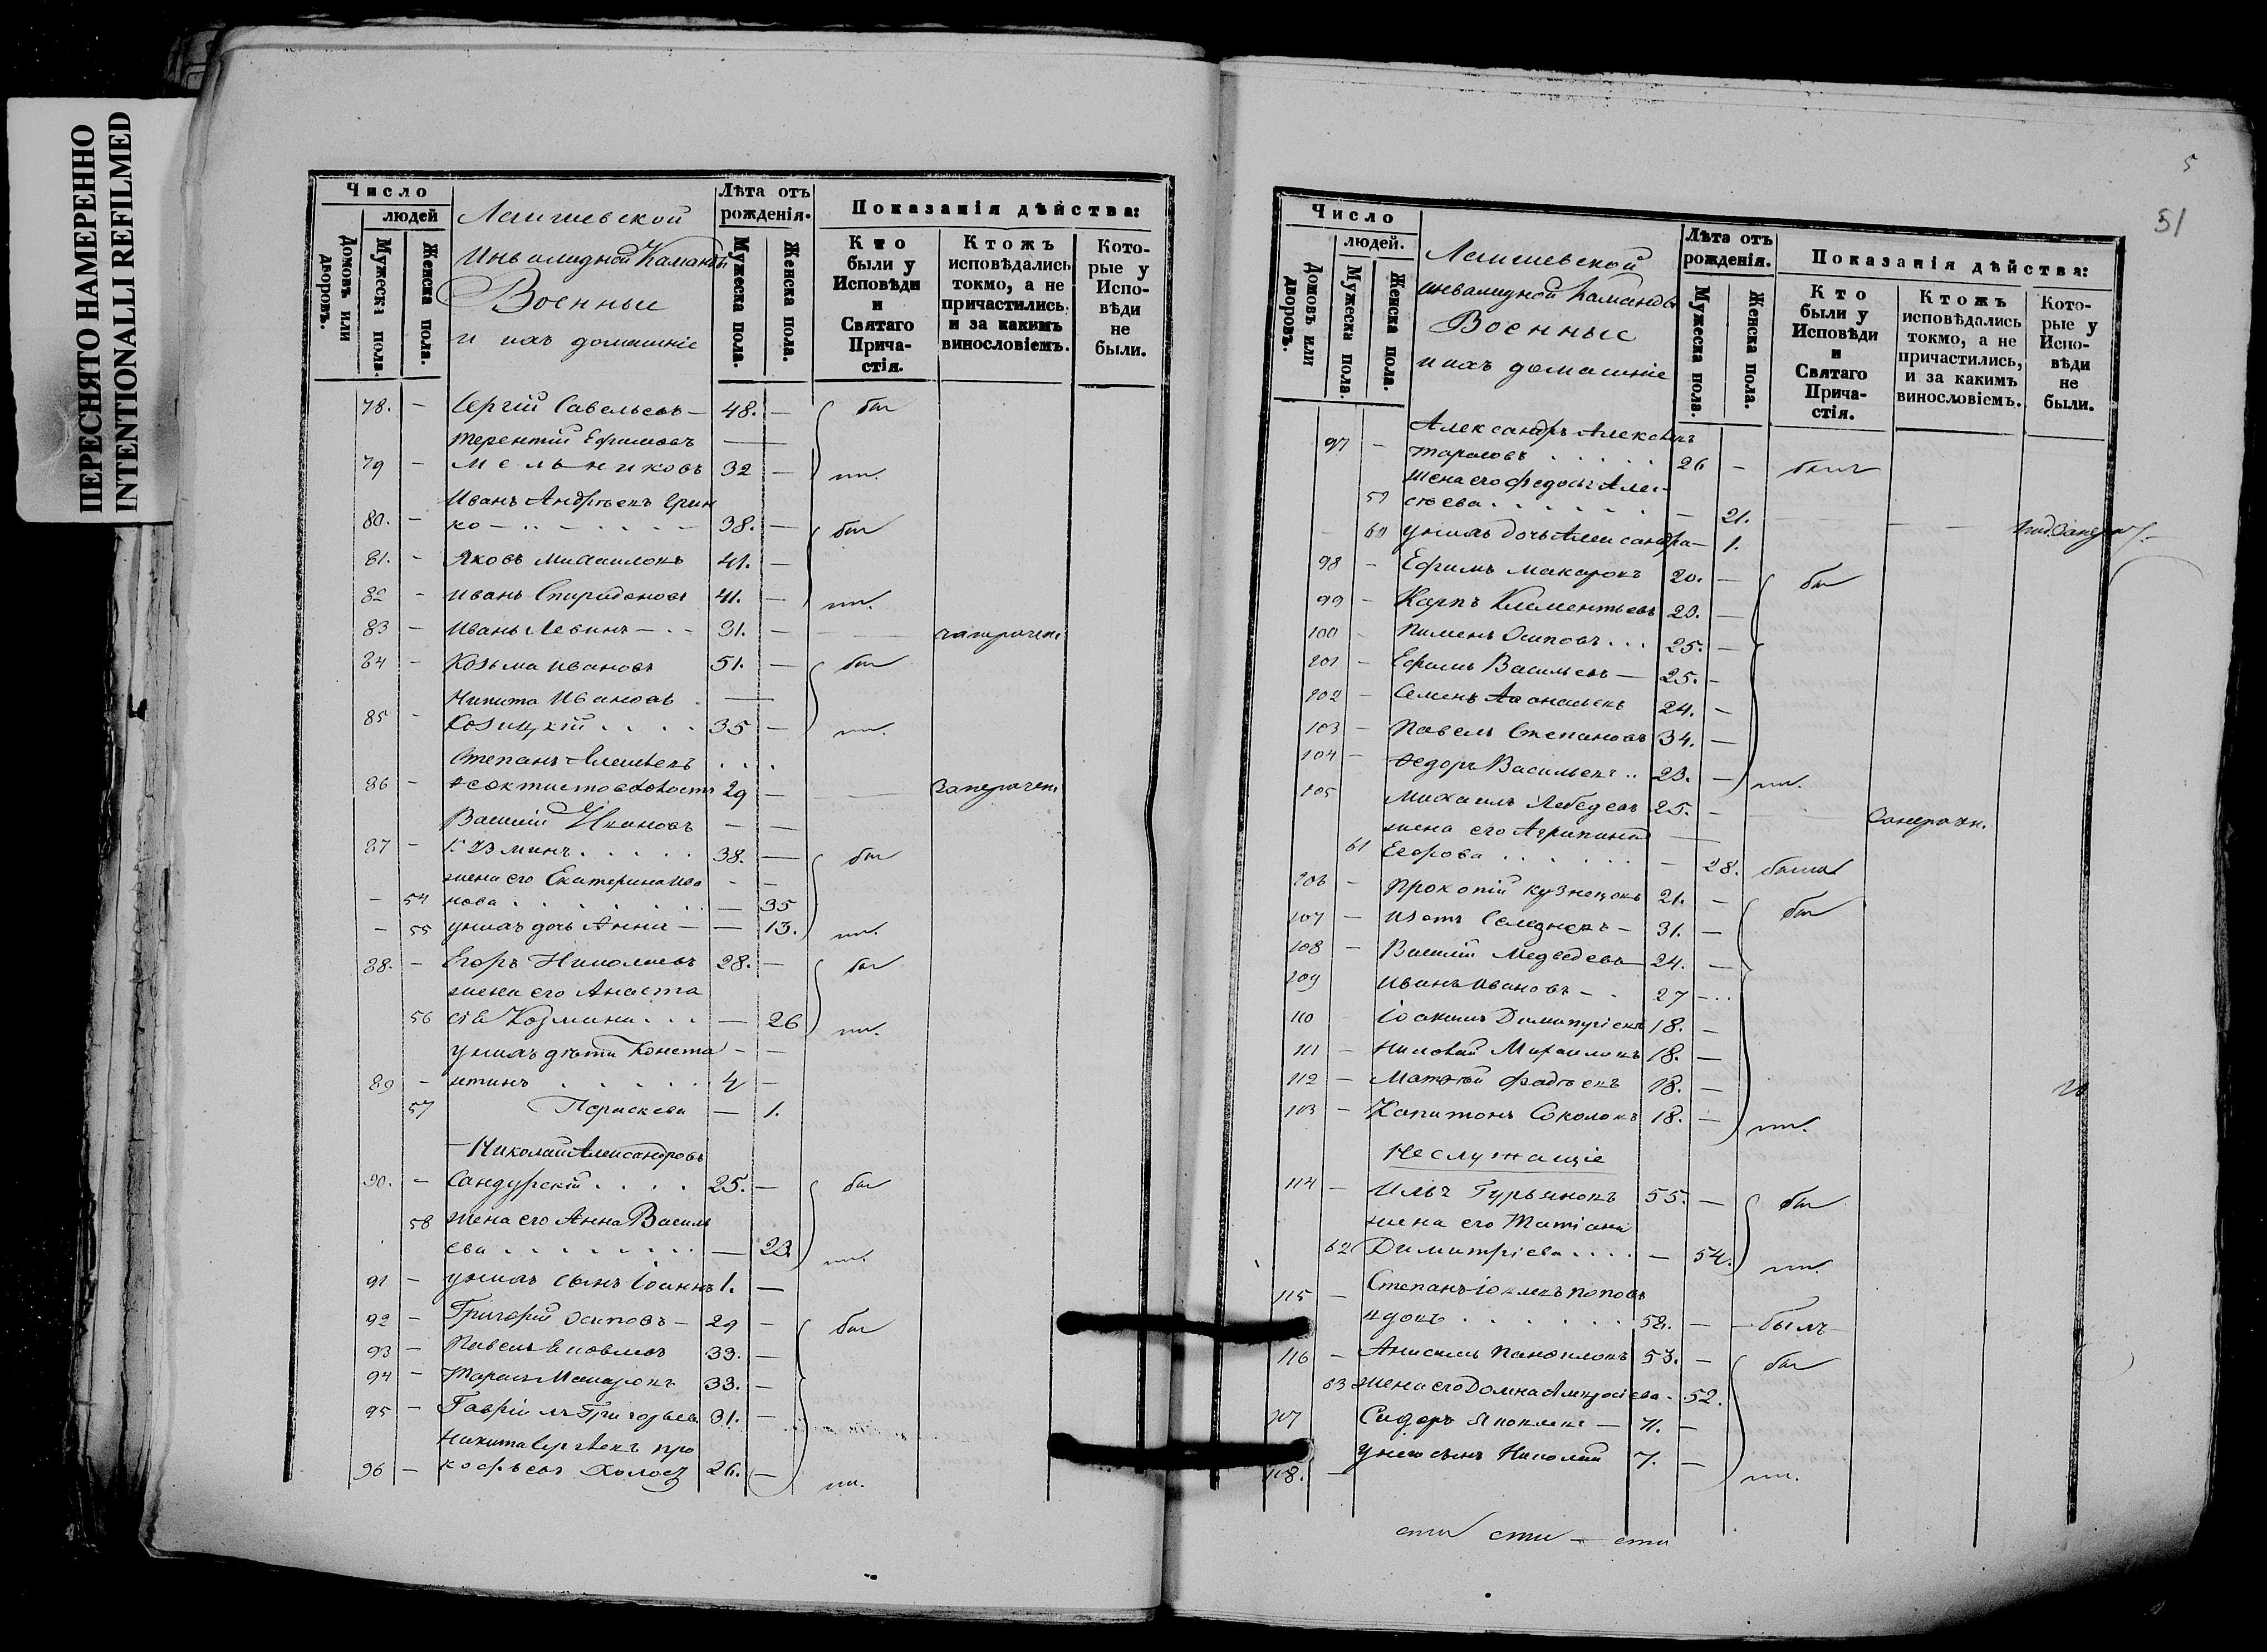 ПЕРЕСНЯТО НАМЕРЕННО
INTENTIONALLI REFILMED
Число
людей
Домовъ или дворовъ.
Мужеска пола.
Женска пола.
Лаишевской
Инвалидной Каманды
Военные
и ихъ домашніе
Лѣта отъ рожденія.
Мужеска пола.
Женска пола.
Показанія дѣйства:
Кто были у Исповѣди и Святаго Причастія.
Ктожъ исповѣдались токмо, а не причастились и за какимъ винословіемъ.
Которые у Исповѣди не были.
78. – Сергій Савельевъ – 48. – бы
Терентій Ефимовъ
79 – Мельниковъ 32 – ли.
Иванъ Андрѣевъ Ерин
80. – ко 38. – бы
81. – Яковъ Михаиловъ 41. –
82 – Иванъ Спиридоновъ 41. – ли.
83 – Иванъ Левинъ 31. –
84 – Козьма Ивановъ 51. – бы
Никита Ивановъ
85 – Козицкій 35 – ли.
Степанъ Алексѣевъ
86 – 29 –
Василій Ивановъ
87 – Кузминъ 38. – бы
жена его Екатерина Ива
– 54 нова – 35
– 55 у нихъ дочь Анна – – 13. ли.
88. – Егоръ Николаевъ 28. – бы
жена его Анаста
56 сія Козмина – 26 ли.
у нихъ дѣти Конста
89 – нтинъ 4 –
57 Параскева – 1.
Николай Александровъ
90. – Сандурскій 25. – бы
58 жена его Анна Василь
ева – 23. ли.
91 – у нихъ сынъ Іоаннъ 1. –
92 – Григорій Осиповъ – 29 – бы
93 – Павелъ 33. –
94 – Тарасъ Макаровъ 33. –
95 – Гавріилъ Григорьевъ 31. –
Никита Сергѣевъ Про
96 – кофьевъ 26. – ли.
5
51
Число
людей.
Домовъ или дворовъ.
Мужеска пола.
Женска пола.
Лаишевской
инвалидной Каманды
Военные
и ихъ домашніе
Лѣта отъ рожденія.
Мужеска пола.
Женска пола.
Показанія дѣйства:
Кто были у Исповѣди и Святаго Причастія.
Ктожъ исповѣдались токмо, а не причастились, и за какимъ винословіемъ.
Которые у Исповѣди не были.
Александръ Алексѣевъ
97 – 26 – былъ
жена его Федосья Алек
59 сѣева – 21.
– 60 у нихъ дочь Александра – 1.
98 – Ефимъ Макаровъ 20. – бы
99 – Карпъ Климентьевъ 23. –
100 Пименъ Осиповъ 25. –
101 – Ефимъ Васильевъ – 25. –
102 – Семенъ Афонасьевъ 24. –
103 – Павелъ Степановъ 34. –
104 – Ѳедоръ Васильевъ 23. – ли.
105 Михаилъ Лебедевъ 25. –
жена его Агрипина
61 Егорова – 28. была
106 – Прокопій Кузнецовъ 21. – бы
107 – Изотъ Селезневъ – 31. –
108 – Василій Медведевъ 24. –
109 Иванъ Ивановъ 27 –
110 Іоакимъ Димитріевъ 18. –
111 – Николай Михаиловъ 18. –
112 – Матѳей Фадѣевъ 18. –
113 – Капитонъ Соколовъ 18. – ли.
Неслужащіе
114 – Илья Гурьяновъ 55. – бы
жена его Татіана
62 Димитріева – 54. ли.
Степанъ Іоклевъ Поповъ
115 – вдовъ 58. – былъ
116 – Анисимъ Панфиловъ 53. – бы
63 жена его Домна Амвросіева – 52.
117 Сидоръ Яковлевъ – 71. –
118. – у него сынъ Николай 7. – ли.